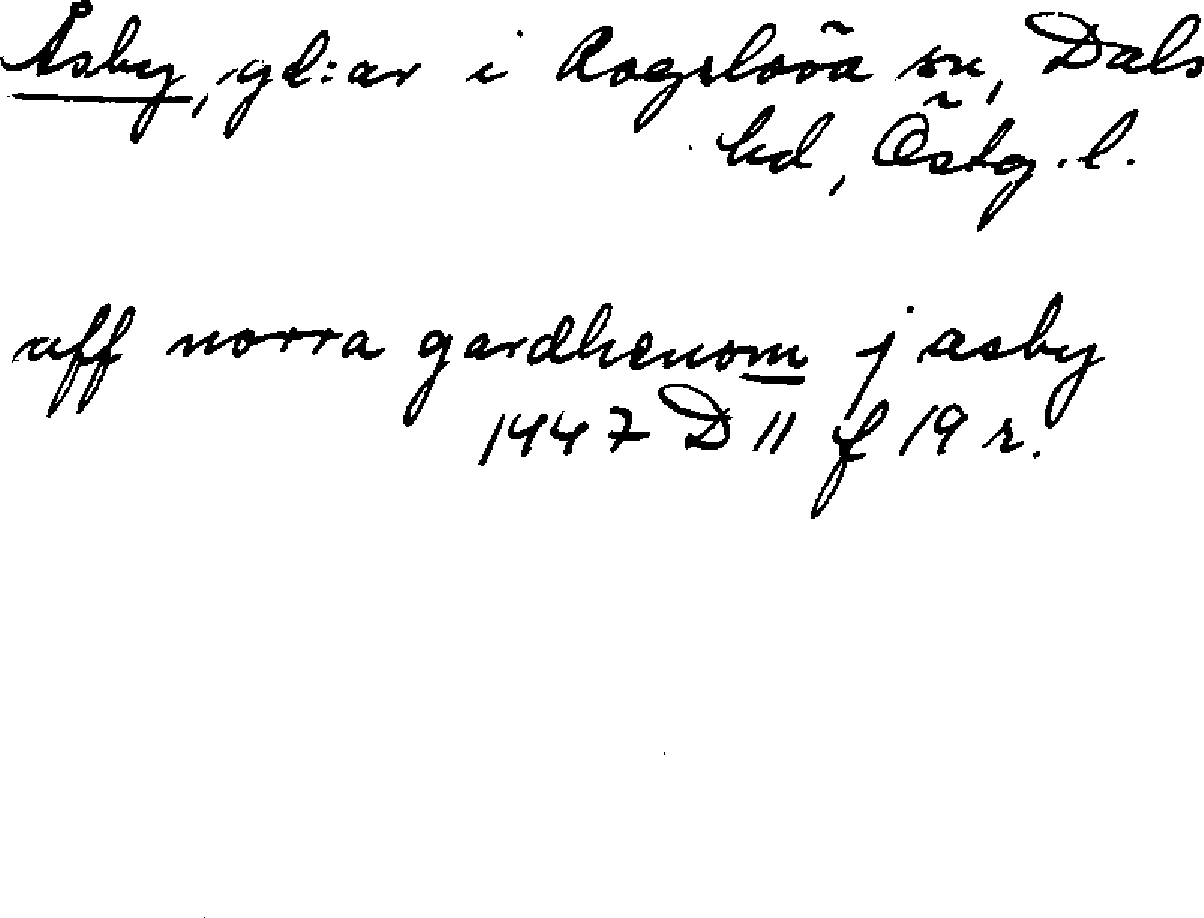 Åsby, gd:ar i Rogslösa sn, Dals
hd, Östg.l.
aff norra gardhenom j asby
1447 D 11 f 19 r.